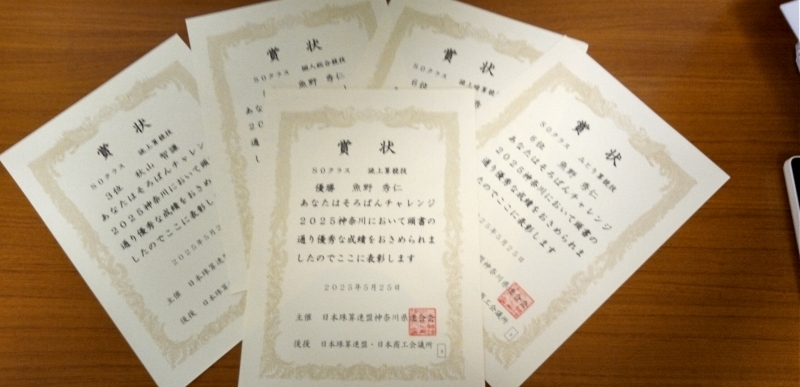 賞状
SOクラス 読上算競技
3位 秋山 智謙
あなたはそろばんチャレン
2025神奈川において頭書
通り優秀な成績をおさめ
したのでここに表彰し
2025年5月2
主催 日本珠算連
後援 日本珠算連
賞状
SOクラス 個人総合競技
魚野 秀仁
賞状
SOクラス
6位
賞状
SOクラス 読上算競技
優勝 魚野 秀仁
あなたはそろばんチャレンジ
2025神奈川において頭書の
通り優秀な成績をおさめられま
したのでここに表彰します
2025年5月25日
主催 日本珠算連盟神奈川県連合会
後援 日本珠算連盟・日本商工会議所
賞状
SOクラス みとり算競技
6位 魚野 秀仁
あなたはそろばんチャレンジ
2025神奈川において頭書の
通り優秀な成績をおさめられま
したのでここに表彰します
2025年5月25日
連盟神奈川県連合会
日本商工会議所